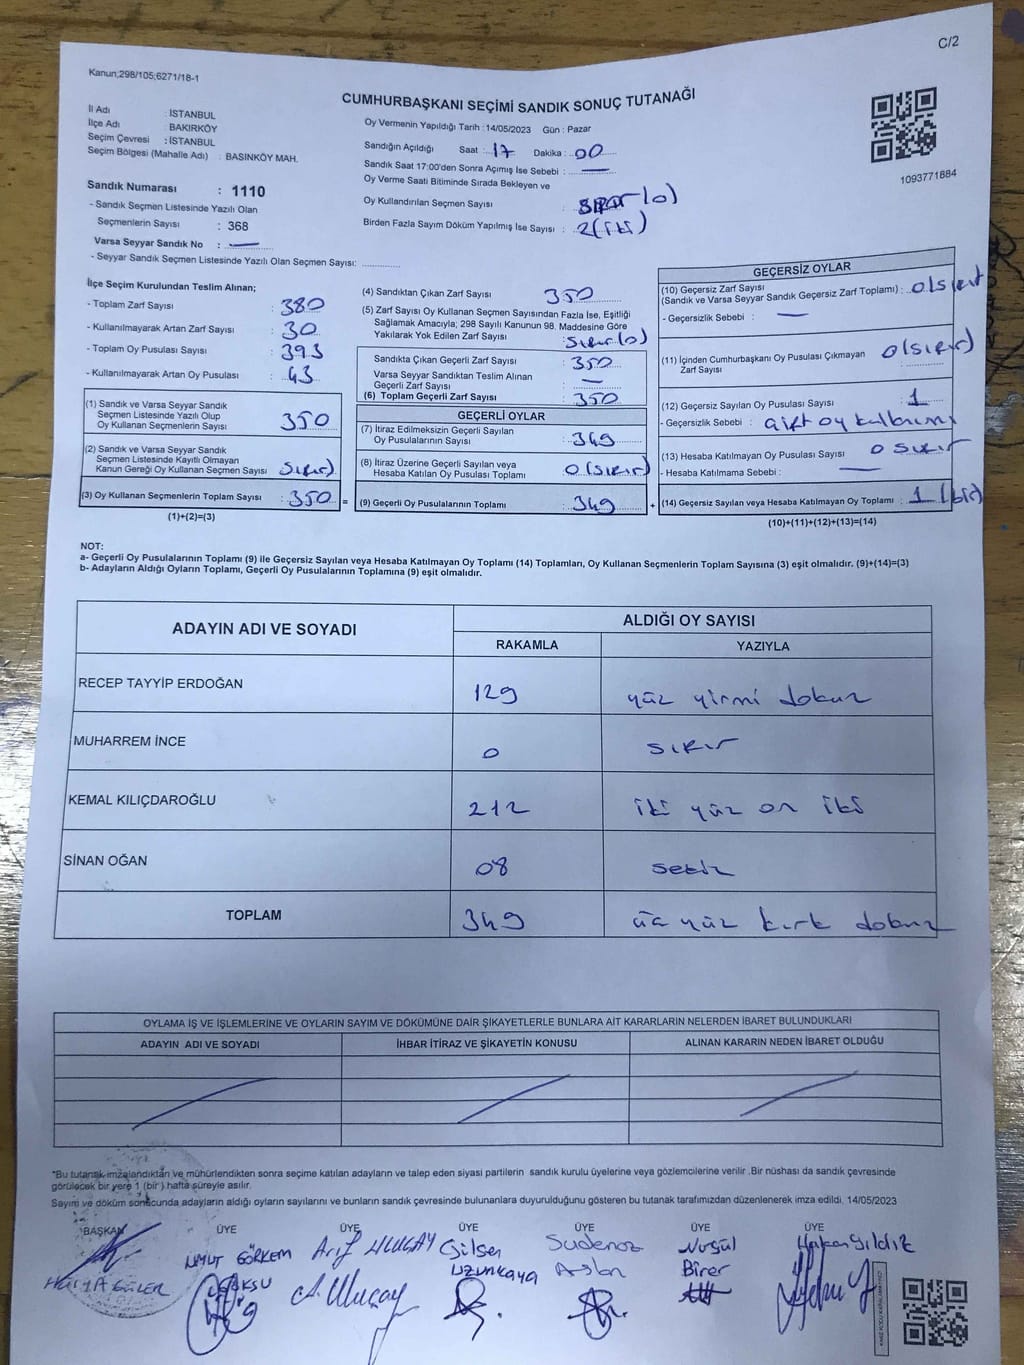 C/2
Kanun;298/105;6271/18-1
CUMHURBAŞKANI SEÇİMİ SANDIK SONUÇ TUTANAĞI
İl Adı : İSTANBUL
İlçe Adı : BAKIRKÖY
Seçim Çevresi : İSTANBUL
Seçim Bölgesi (Mahalle Adı) : BASINKÖY MAH.
Sandık Numarası : 1110
- Sandık Seçmen Listesinde Yazılı Olan
Seçmenlerin Sayısı : 368
Varsa Seyyar Sandık No :
- Seyyar Sandık Seçmen Listesinde Yazılı Olan Seçmen Sayısı:
Oy Vermenin Yapıldığı Tarih :14/05/2023 Gün : Pazar
Sandığın Açıldığı Saat : 17 Dakika : 00
Sandık Saat 17:00'den Sonra Açımış İse Sebebi : —
Oy Verme Saati Bitiminde Sırada Bekleyen ve
Oy Kullandırılan Seçmen Sayısı : (0)
Birden Fazla Sayım Döküm Yapılmış İse Sayısı : 2 (iki)
1093771884
İlçe Seçim Kurulundan Teslim Alınan;
- Toplam Zarf Sayısı : 380
- Kullanılmayarak Artan Zarf Sayısı : 30
- Toplam Oy Pusulası Sayısı : 393
- Kullanılmayarak Artan Oy Pusulası : 43
(1) Sandık ve Varsa Seyyar Sandık
Seçmen Listesinde Yazılı Olup
Oy Kullanan Seçmenlerin Sayısı : 350
(2) Sandık ve Varsa Seyyar Sandık
Seçmen Listesinde Kayıtlı Olmayan
Kanun Gereği Oy Kullanan Seçmen Sayısı : sıfır)
(3) Oy Kullanan Seçmenlerin Toplam Sayısı : 350 =
(1)+(2)=(3)
(4) Sandıktan Çıkan Zarf Sayısı 350
(5) Zarf Sayısı Oy Kullanan Seçmen Sayısından Fazla İse, Eşitliği
Sağlamak Amacıyla; 298 Sayılı Kanunun 98. Maddesine Göre
Yakılarak Yok Edilen Zarf Sayısı : sıfır (0)
Sandıkta Çıkan Geçerli Zarf Sayısı : 350
Varsa Seyyar Sandıktan Teslim Alınan
Geçerli Zarf Sayısı : —
(6) Toplam Geçerli Zarf Sayısı : 350
GEÇERLİ OYLAR
(7) İtiraz Edilmeksizin Geçerli Sayılan
Oy Pusulalarının Sayısı : 349
(8) İtiraz Üzerine Geçerli Sayılan veya
Hesaba Katılan Oy Pusulası Toplamı : 0 (sıfır)
(9) Geçerli Oy Pusulalarının Toplamı : 349 +
GEÇERSİZ OYLAR
(10) Geçersiz Zarf Sayısı
(Sandık ve Varsa Seyyar Sandık Geçersiz Zarf Toplamı) : 0
- Geçersizlik Sebebi : —
(11) İçinden Cumhurbaşkanı Oy Pusulası Çıkmayan
Zarf Sayısı : 0 (sıfır)
(12) Geçersiz Sayılan Oy Pusulası Sayısı : 1
- Geçersizlik Sebebi : çift oy kullanımı
(13) Hesaba Katılmayan Oy Pusulası Sayısı : 0 sıfır
- Hesaba Katılmama Sebebi : —
(14) Geçersiz Sayılan veya Hesaba Katılmayan Oy Toplamı : 1 (bir)
(10)+(11)+(12)+(13)=(14)
NOT:
a- Geçerli Oy Pusulalarının Toplamı (9) ile Geçersiz Sayılan veya Hesaba Katılmayan Oy Toplamı (14) Toplamları, Oy Kullanan Seçmenlerin Toplam Sayısına (3) eşit olmalıdır. (9)+(14)=(3)
b- Adayların Aldığı Oyların Toplamı, Geçerli Oy Pusulalarının Toplamına (9) eşit olmalıdır.
ADAYIN ADI VE SOYADI ALDIĞI OY SAYISI
RAKAMLA YAZIYLA
RECEP TAYYİP ERDOĞAN 129 yüz yirmi dokuz
MUHARREM İNCE 0 sıfır
KEMAL KILIÇDAROĞLU 212 iki yüz on iki
SİNAN OĞAN 08 sekiz
TOPLAM 349 üç yüz kırk dokuz
OYLAMA İŞ VE İŞLEMLERİNE VE OYLARIN SAYIM VE DÖKÜMÜNE DAİR ŞİKAYETLERLE BUNLARA AİT KARARLARIN NELERDEN İBARET BULUNDUKLARI
ADAYIN ADI VE SOYADI İHBAR İTİRAZ VE ŞİKAYETİN KONUSU ALINAN KARARIN NEDEN İBARET OLDUĞU
"Bu tutanak imzalandıktan ve mühürlendikten sonra seçime katılan adayların ve talep eden siyasi partilerin sandık kurulu üyelerine veya gözlemcilerine verilir .Bir nüshası da sandık çevresinde
görülecek bir yere 1 (bir ) hafta süreyle asılır.
Sayım ve döküm sonucunda adayların aldığı oyların sayılarını ve bunların sandık çevresinde bulunanlara duyurulduğunu gösteren bu tutanak tarafımızdan düzenlenerek imza edildi. 14/05/2023
BAŞKAN ÜYE ÜYE ÜYE ÜYE ÜYE ÜYE
HÜLYA GÜLER UMUT GÖRKEM Arif ULUÇAY Gilsen Sudenaz Nuşül Hakan Yıldız
GÖKSU A. Uluçay UZUNKAYA Aslan Birer